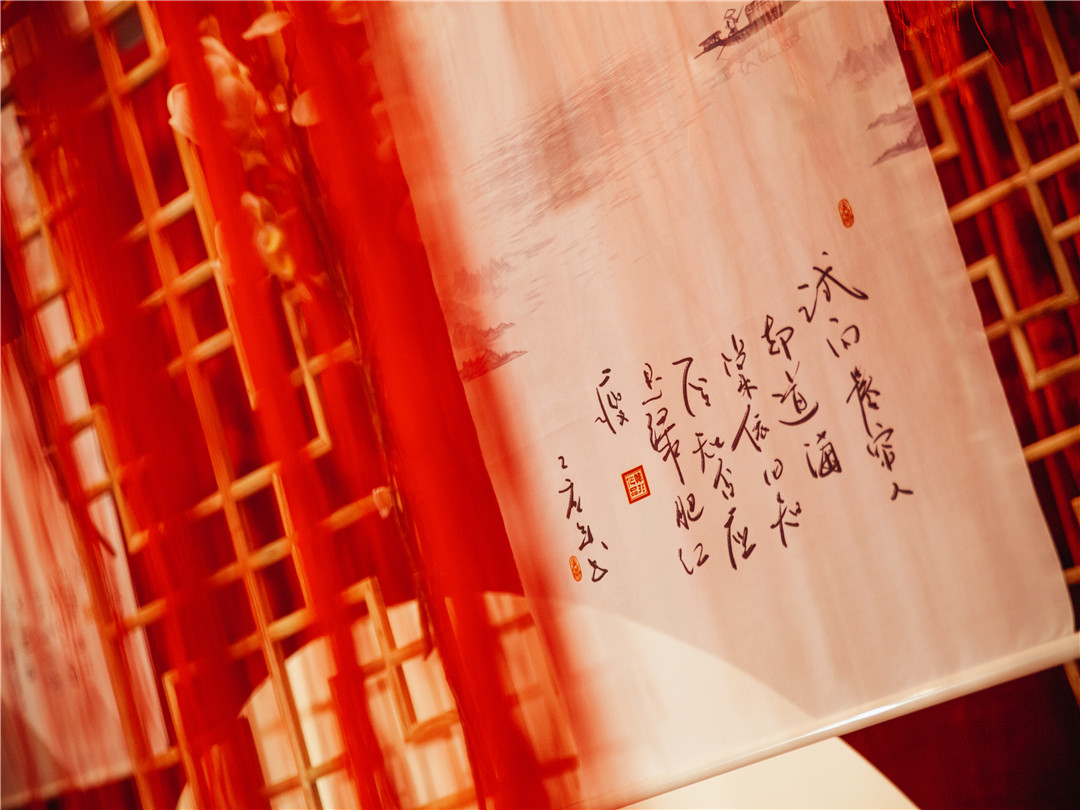 试问卷帘人
却道海
棠依旧知
否知否应
是绿肥红
瘦
年书